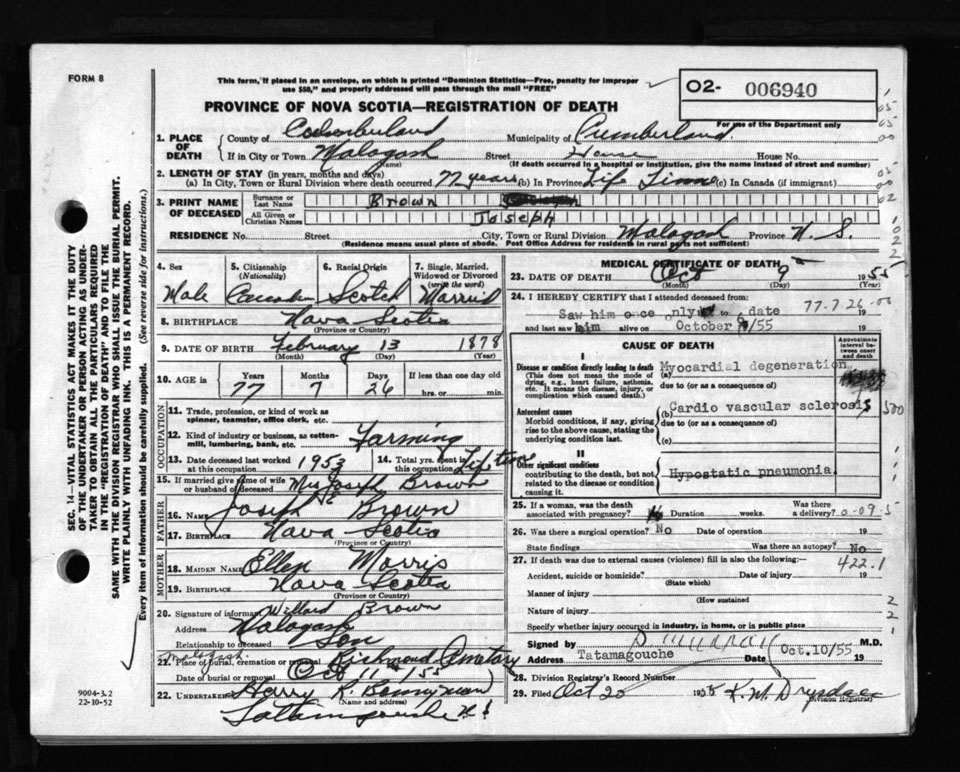 FORM 8
This form, if placed in an envelope, on which is printed "Dominion Statistics—Free, penalty for improper
use $50," and properly addressed will pass through the mail "FREE"
O2- 006940
For use of the Department only
PROVINCE OF NOVA SCOTIA—REGISTRATION OF DEATH
SEC. 14—VITAL STATISTICS ACT MAKES IT THE DUTY
OF THE UNDERTAKER OR PERSON ACTING AS UNDERTAKER
TO OBTAIN ALL THE PARTICULARS REQUIRED
IN THE "REGISTRATION OF DEATH" AND TO FILE THE
SAME WITH THE DIVISION REGISTRAR WHO SHALL ISSUE THE BURIAL PERMIT.
WRITE PLAINLY WITH UNFADING INK. THIS IS A PERMANENT RECORD.
Every item of information should be carefully supplied. (See reverse side for instructions.)
1. PLACE OF DEATH
County of Municipality of Cumberland
If in City or Town Malagash Street House House No.
(Name) (If death occurred in a hospital or institution, give the name instead of street and number)
2. LENGTH OF STAY (in years, months and days)
(a) In City, Town or Rural Division where death occurred 77 years (b) In Province Life Time (c) In Canada (if immigrant)
3. PRINT NAME OF DECEASED
Surname or Last Name Brown
All Given or Christian Names Joseph
RESIDENCE No. Street City, Town or Rural Division Malagash Province N. S.
(Residence means usual place of abode. Post Office Address for residents in rural parts not sufficient)
4. Sex Male
5. Citizenship (Nationality)
6. Racial Origin Scotch
7. Single, Married, Widowed or Divorced (write the word) Married
8. BIRTHPLACE Nova Scotia
(Province or Country)
9. DATE OF BIRTH February 13 1878
(Month) (Day) (Year)
10. AGE in Years Months Days If less than one day old
77 7 26 hrs. or min.
OCCUPATION
11. Trade, profession, or kind of work as spinner, teamster, office clerk, etc.
12. Kind of industry or business, as cotton-mill, lumbering, bank, etc. Farming
13. Date deceased last worked at this occupation 1953
14. Total yrs. spent in this occupation Life time
15. If married give name of wife or husband of deceased Mrs Joseph Brown
FATHER
16. NAME Joseph Brown
17. BIRTHPLACE Nova Scotia
(Province or Country)
MOTHER
18. MAIDEN NAME Ellen Morris
19. BIRTHPLACE Nova Scotia
(Province or Country)
20. Signature of informant Willard Brown
Address Malagash
Relationship to deceased Son
Malagash
21. Place of burial, cremation or removal Richmond Cemetary
Date of burial or removal Oct 11 1955
22. UNDERTAKER Harry K. Bonnyman
(Name and address)
9004-3.2
22-10-52
MEDICAL CERTIFICATE OF DEATH
23. DATE OF DEATH Oct 9 1955
(Month) (Day) (Year)
24. I HEREBY CERTIFY that I attended deceased from:
77-7-26-00
Saw him once only to date 19
and last saw him alive on October /55 19
CAUSE OF DEATH
Approximate interval between onset and death
I
Disease or condition directly leading to death
(This does not mean the mode of dying, e.g., heart failure, asthenia, etc. It means the disease, injury, or complication which caused death.)
(a) Myocardial degeneration
due to (or as a consequence of)
Antecedent causes
Morbid conditions, if any, giving rise to the above cause, stating the underlying condition last.
(b) Cardio vascular sclerosis
due to (or as a consequence of)
(c)
II
Other significant conditions
contributing to the death, but not related to the disease or condition causing it.
Hypostatic pneumonia
25. If a woman, was the death associated with pregnancy? Duration weeks. Was there a delivery?
0-09-5
26. Was there a surgical operation? No Date of operation 19
State findings Was there an autopsy? No
27. If death was due to external causes (violence) fill in also the following:—
422.1
Accident, suicide or homicide? Date of injury 19
(State which)
Manner of injury
(How sustained
Nature of injury
Specify whether injury occurred in industry, in home, or in public place
Signed by D Murray M.D.
Address Tatamagouche Date Oct.10/55 19
28. Division Registrar's Record Number
29. Filed Oct 20 1955 K. M. Drysdale
(Division Registrar)